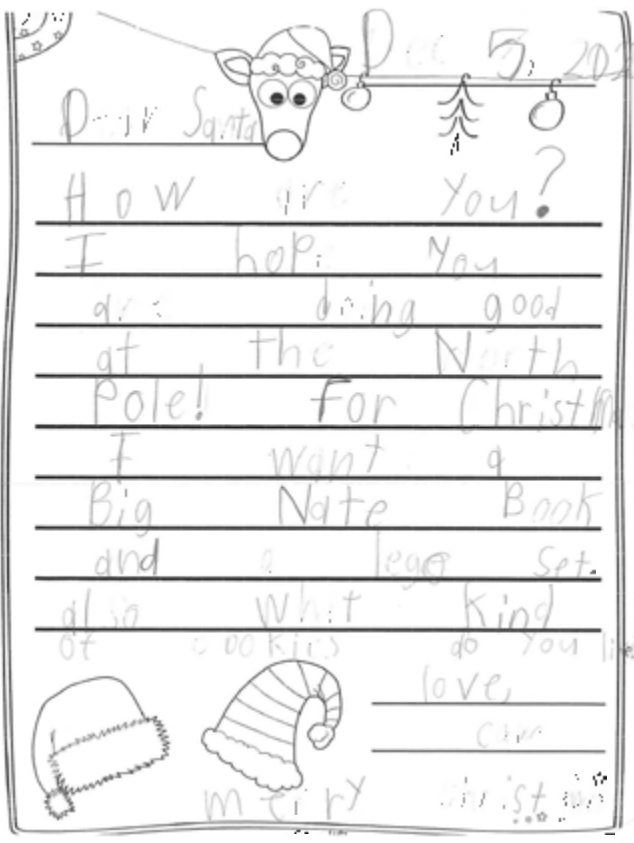 Dec 5, 202
Dear Santa
How are you?
I hope you
are doing good
at the North
Pole! For Christm
I want a
Big Nate Book
and a lego set.
also what kind
of cookies do you like
love,
cam
merry christmas